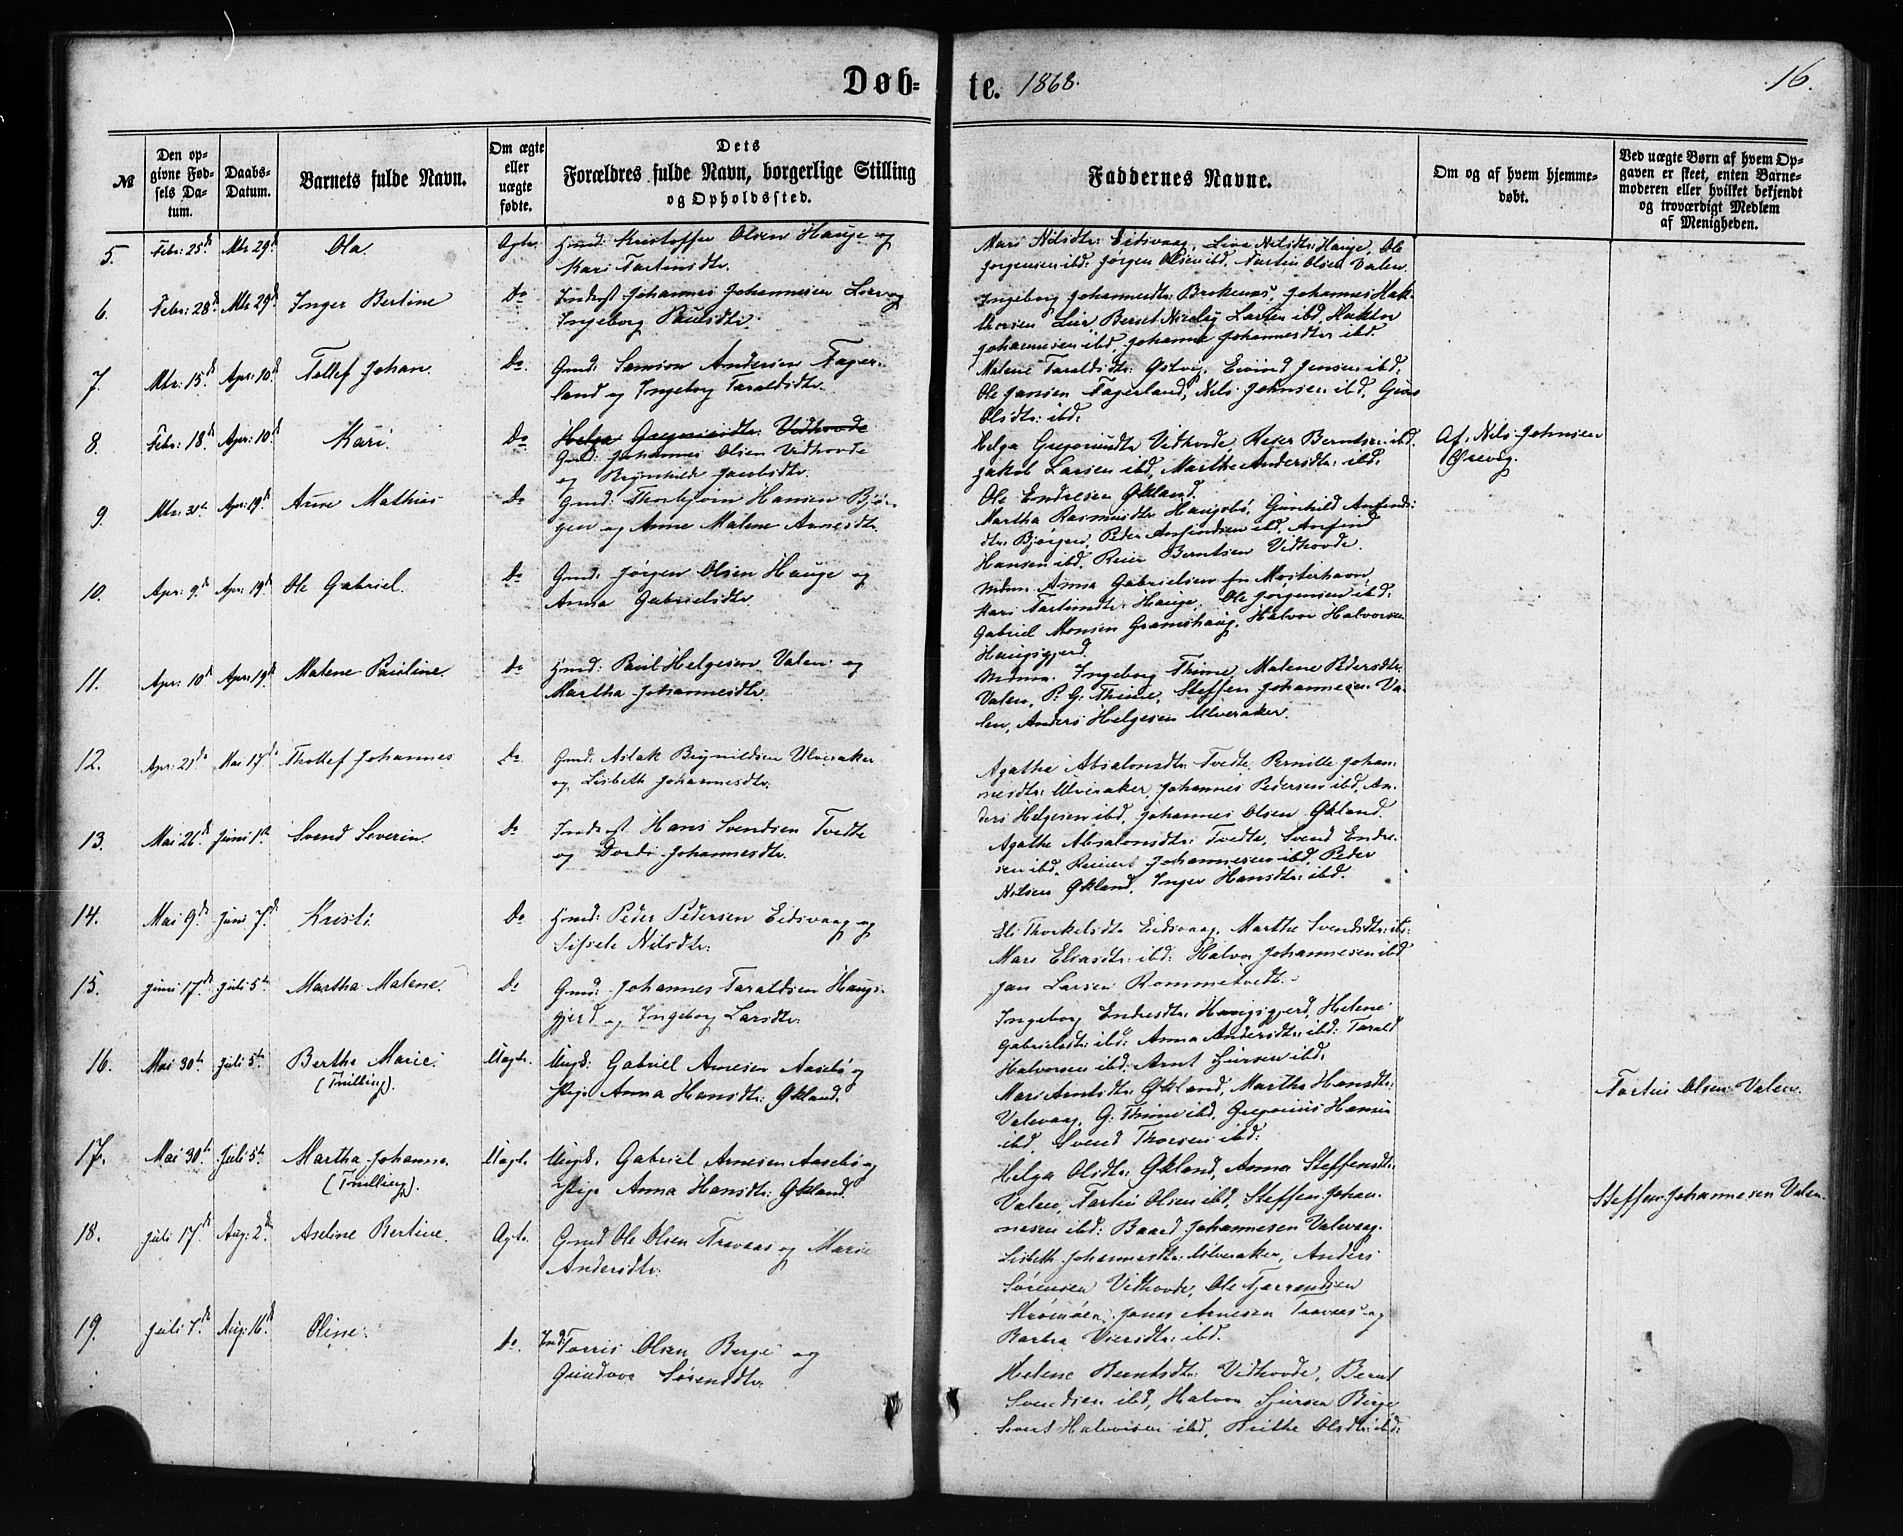 Døb=
te. 1868.
16.
№
Den op=
givne Fød=
sels Da=
tum.
Daabs=
Datum.
Barnets fulde Navn.
Om ægte
eller
uægte
fødte.
Dets
Forældres fulde Navn, borgerlige Stilling
og Opholdssted.
Faddernes Navne.
Om og af hvem hjemme=
døbt.
Ved uægte Børn af hvem Op=
gaven er skeet, enten Barne=
moderen eller hvilket bekjendt
og troværdigt Medlem
af Menigheden.
5. Febr: 25d Mtr 29d Ola. Ægte. Gmd: Kristoffer Olsen Hauge og
Kari Tartinsdtr.
Mari Nilsdtr: Eidsvaag, Nilsdtr: Hauge, Ole
Jørgensen ibd: Jørgen Olsen ibd. Tartin Olsen Valen.
6. Febr: 28d Mtr 29d Inger Bertine Do Inderst Johannes Johannesen Lier og
Ingeborg Paulsdtr.
Ingeborg Johannesdtr: Brokenæs, Johannes Hak-
Lier, Berset Larsen ibd, Haktor
Johannesen ibd, Johanne Johannesdtr ibd.
7. Mtr: 15d Apr: 10d Tollef Johan. Do. Gmd: Samson Andersen Fager-
land og Ingeborg Taraldsdtr.
Malene Taraldsdtr: Eivind Jensen ibd.
Ole Jansen Fagerland, Nils Johnsen ibd,
Olsdtr: ibd.
8. Febr: 18d Apr: 10d Kari. Do Helga Gregoriusdtr: Vidhovde
Gmd: Johannes Olsen Vidhovde
og Brynhilde Jacobsdtr.
Helga Gregoriusdtr Vidhovde, Reier Berntsen ibd.
Jakob Larsen ibd, Marthe Andersdtr: ibd.
Ole Endresen Økland.
Af: Nils Johnsen
9. Mtr: 31te Apr: 19d Arne Mathias Do Gmd: Thorbjørn Hansen Bjør-
gen og Anne Malene Arnesdtr.
Martha Rasmusdtr Haugsbø, Gunhild Anfinds-
dtr: Bjørgen, Peder Anfindsen ibd, Anfind
Hansen ibd. Reier Berntsen Vidhovde.
10. Apr: 9d Apr: 19d Ole Gabriel. Do Gmd: Jørgen Olsen Hauge og
Anna Gabrielsdtr
Anna Gabrielsen fra Mosterhavn,
Kari Tartinsdtr: Hauge, Ole Jørgensen ibd:
Gabriel Monsen Halvor Halvorsen
Haugsgjerd.
11. Apr: 10d Apr: 19d Malene Pauline. Do Gmd: Paul Helgesen Valen og
Martha Johannesdtr.
Ingeborg Thime, Malene Pedersdtr:
Valen, P. G. Thime, Steffen Johannesen Va-
len, Anders Helgesen Ulveraker.
12. Apr: 21de Mai 17d Thollef Johannes Do Gmd: Aslak Brynildsen Ulveraker
og Lisbeth Johannesdtr.
Agatha Absalonsdtr: Tvedte, Pernille Johan-
nesdtr: Ulveraker, Johannes Pedersen ibd, An-
ders Helgesen ibd, Johannes Olsen Økland.
13. Mai 26d Juni 1te Svend Severin. Do Inderst Hans Svendsen Tvedte
og Johannesdtr.
Agathe Absalonsdtr: Tvedte, Svend Endre-
sen ibd. Reinert Johannesen ibd, Peder
Nilsen Økland, Inger Hansdtr: ibd.
14. Mai 9d Juni 7d Kristi Do Gmd: Peder Pedersen Eidsvaag og
Sissele Nilsdtr:
Eli Thorkelsdtr Eidsvaag, Marthe Svendsdtr: ibd:
Mari Eliasdtr: ibd: Halvor Johannesen ibd
Jan Larsen Rommetvedt.
15. Juni 17d Juli 5te Martha Malene. Do Gmd: Johannes Taraldsen Haugs-
gjerd og Ingeborg Larsdtr.
Ingeborg Endresdtr: Haugsgjerd, Helene
Gabrielsdtr ibd: Anna Andersdtr: ibd: Tarald
Halvorsen ibd: Arnt Sjursen ibd.
16. Mai 30te Juli 5te Bertha Marie.
(Tvilling).
Uægt. Ungk: Gabriel Arnesen Aasebø og
Pige Anna Hansdtr: Økland.
Mari Arntsdtr: Økland, Martha Hansdtr:
Valevaag, G. Thime ibd, Gregorius Hansen
ibd. Svend Thoresen ibd:
Tartin Olsen Valen.
17. Mai 30te Juli 5te Martha Johanna.
(Tvilling).
Uægt. Ungk. Gabriel Arnesen Aasebø og
Pige Anna Hansdtr: Økland.
Helga Olsdtr: Økland, Anna Steffensdtr:
Valen, Tartin Olsen ibd, Steffen Johan-
nesen ibd: Baard Johannesen Valevaag.
Steffen Johannesen Valen.
18. Juli 17d Aug: 2d Aseline Bertine. Ægte. Gmd Ole Olsen Travaas og Marie
Andersdtr:
Lisbeth Johannesdtr: Ulveraker, Anders
Sørensen Vidhovde, Ole
Strømøen, Jonas Arnesen Travaas og
ibd.
19. Juli 7d Aug: 16d Oline. Do. Ind: Torris Olsen Berge og
Sørensdtr.
Helene Berntsdtr: Vidhovde, Bernt
Svendsen ibd, Halvor Sjursen Berge
Sivert Halvorsen ibd, Olsdtr: ibd: